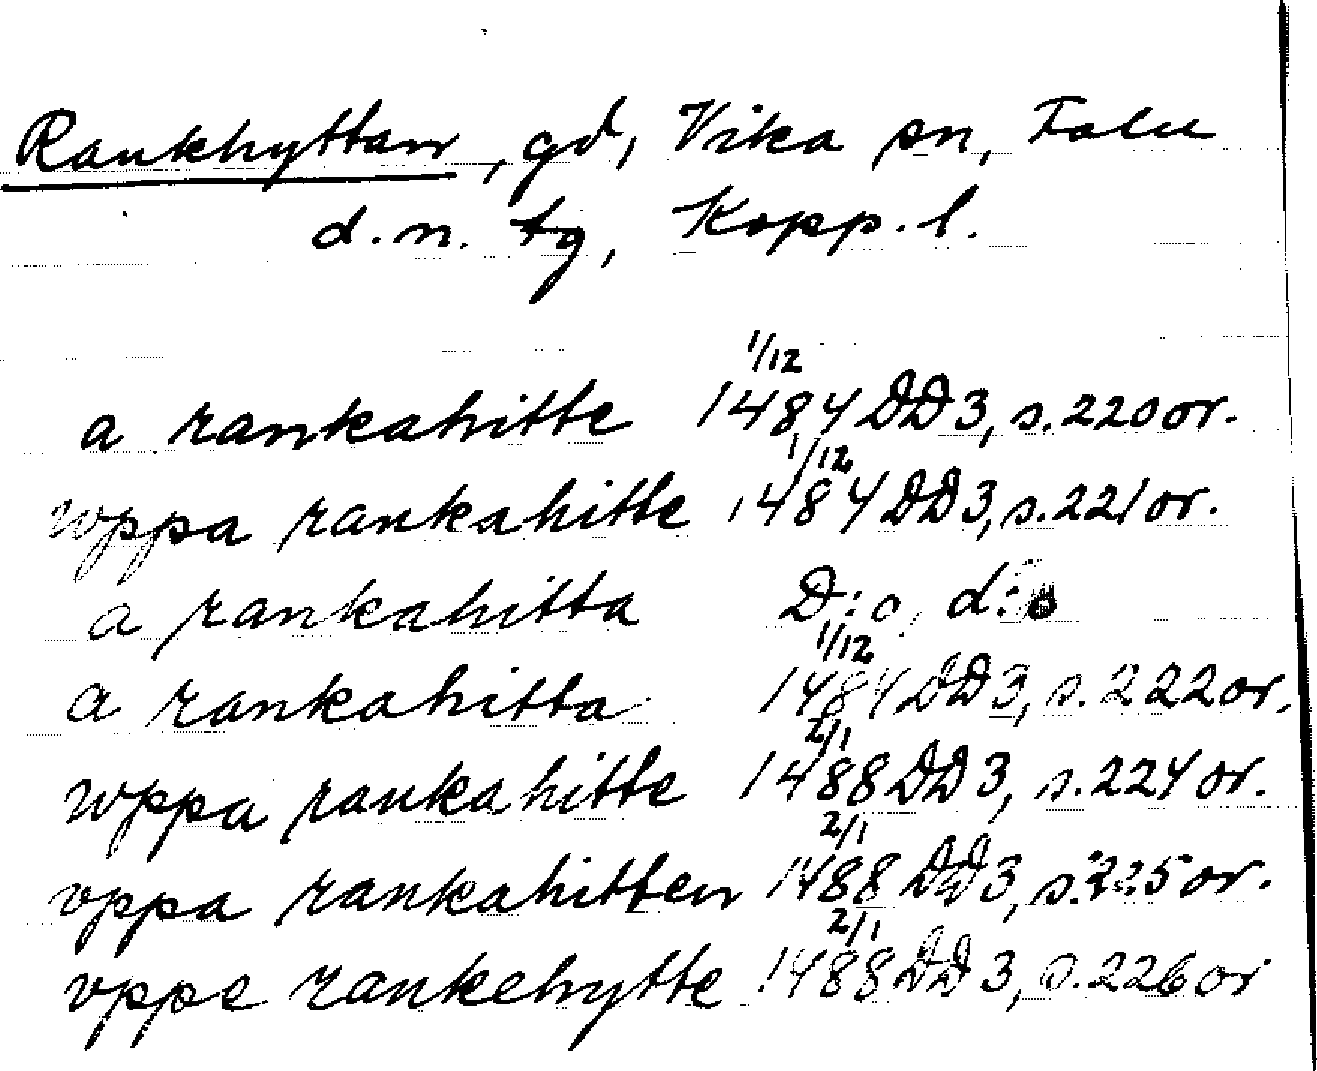 Rankhyttan, gd, Vika sn, Falu
d.n. tg, Kopp.l.
a rankahitte 1/12 1484 DD 3, s.220 or.
wppa rankahitte 1/12 1484 DD 3, s.221 or.
a rankahitta D:o, d:o
a rankahitta 1/12 1484 DD 3, s.222 or.
wppa rankahitte 2/1 1488 DD 3, s.224 or.
vppa rankahitten 2/1 1488 DD 3, s.225 or.
vppe rankehytte 2/1 1488 DD 3, s.226 or